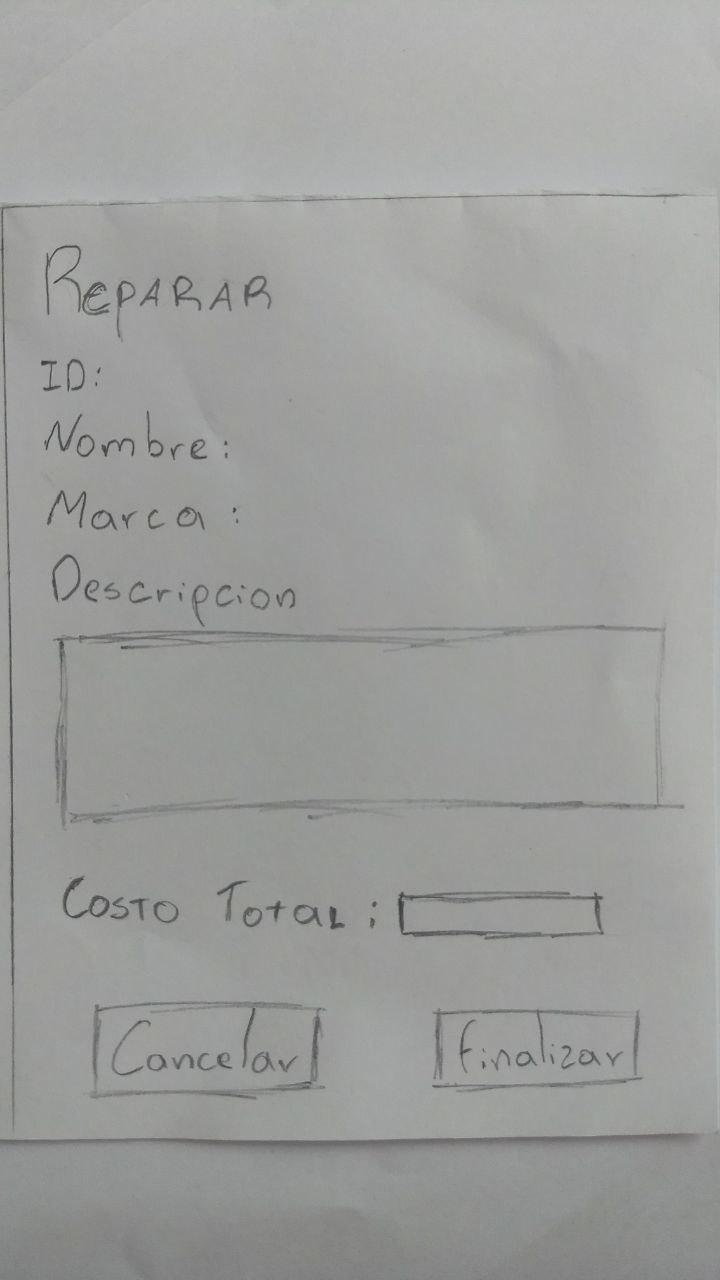 REPARAR
ID:
Nombre:
Marca:
Descripcion
Costo Total:
Cancelar Finalizar